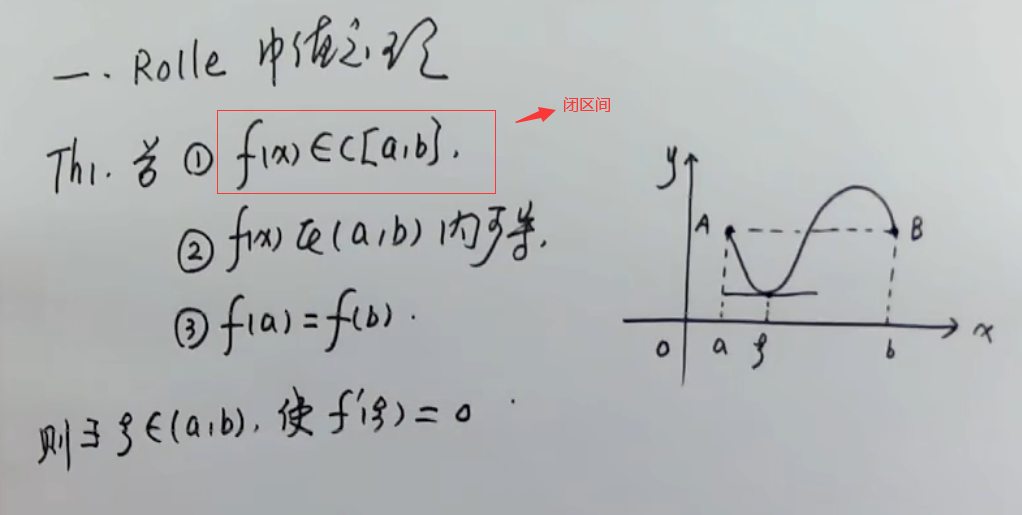 一. Rolle 中值定理
Th1. 若 ① f(x)∈C[a,b]. 闭区间
② f(x)在(a,b)内可导.
③ f(a)=f(b).
则∃ξ∈(a,b),使 f'(ξ)=0
y
A B
0 a ξ b x